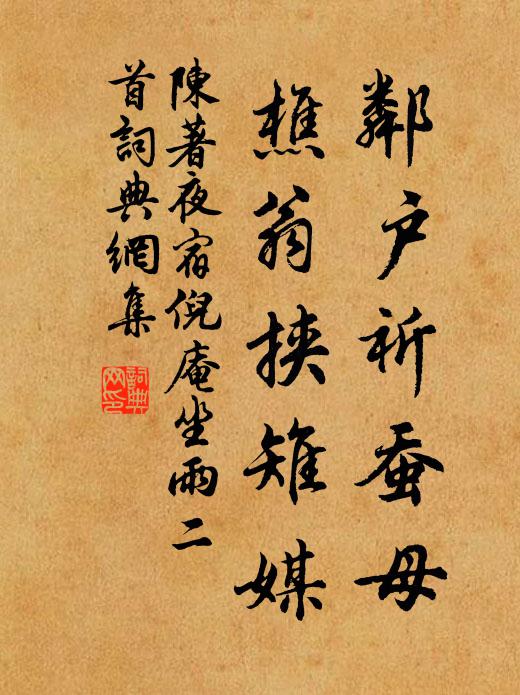 鄰户祈蚕母
樵翁挟雉媒
陳著夜宿倪庵坐雨二
首詞典網集
詞典網印